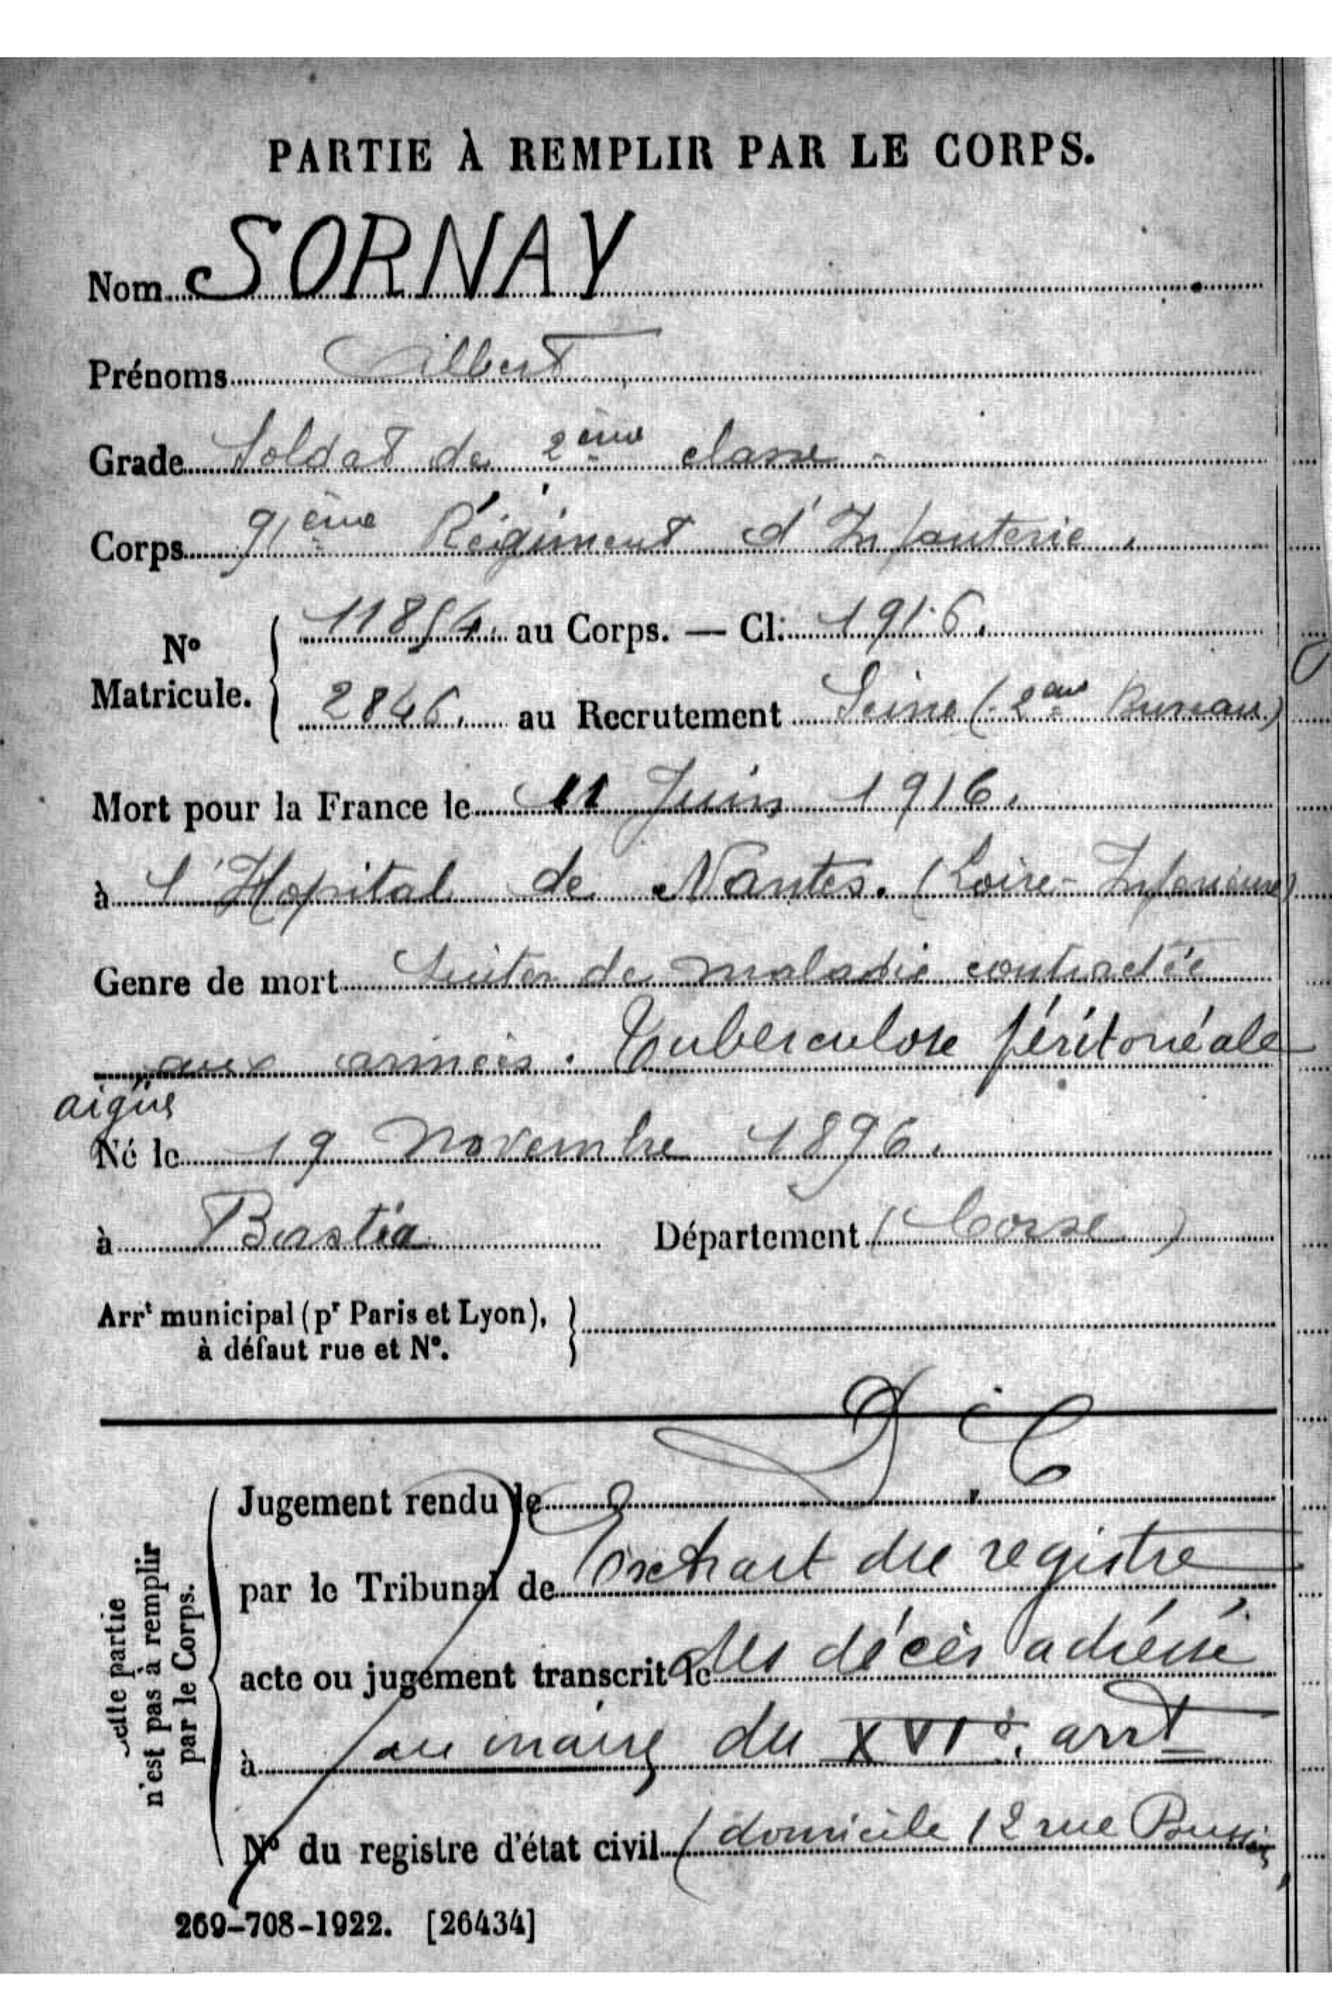 PARTIE À REMPLIR PAR LE CORPS.
Nom SORNAY
Prénoms Albert
Grade Soldat de 2ème classe
Corps 91ème Régiment d'Infanterie.
N° Matricule. { 11854. au Corps. — Cl: 1916.
2846. au Recrutement Seine (2ème Bureau)
Mort pour la France le 11 Juin 1916.
à l'Hopital de Nantes. (Loire-Inférieure)
Genre de mort Suites de maladie contractée
aux armées. Tuberculose péritonéale
aigüe
Né le 19 Novembre 1896.
à Bastia Département (Corse)
Arrt municipal (pr Paris et Lyon), à défaut rue et N°.
D. C
Cette partie n'est pas à remplir par le Corps.
Jugement rendu le
par le Tribunal de Extrait du registre
acte ou jugement transcrit le des décès adressé
à au maire du XVIe. arrt
N° du registre d'état civil (domicile 12 rue
269-708-1922. [26434]